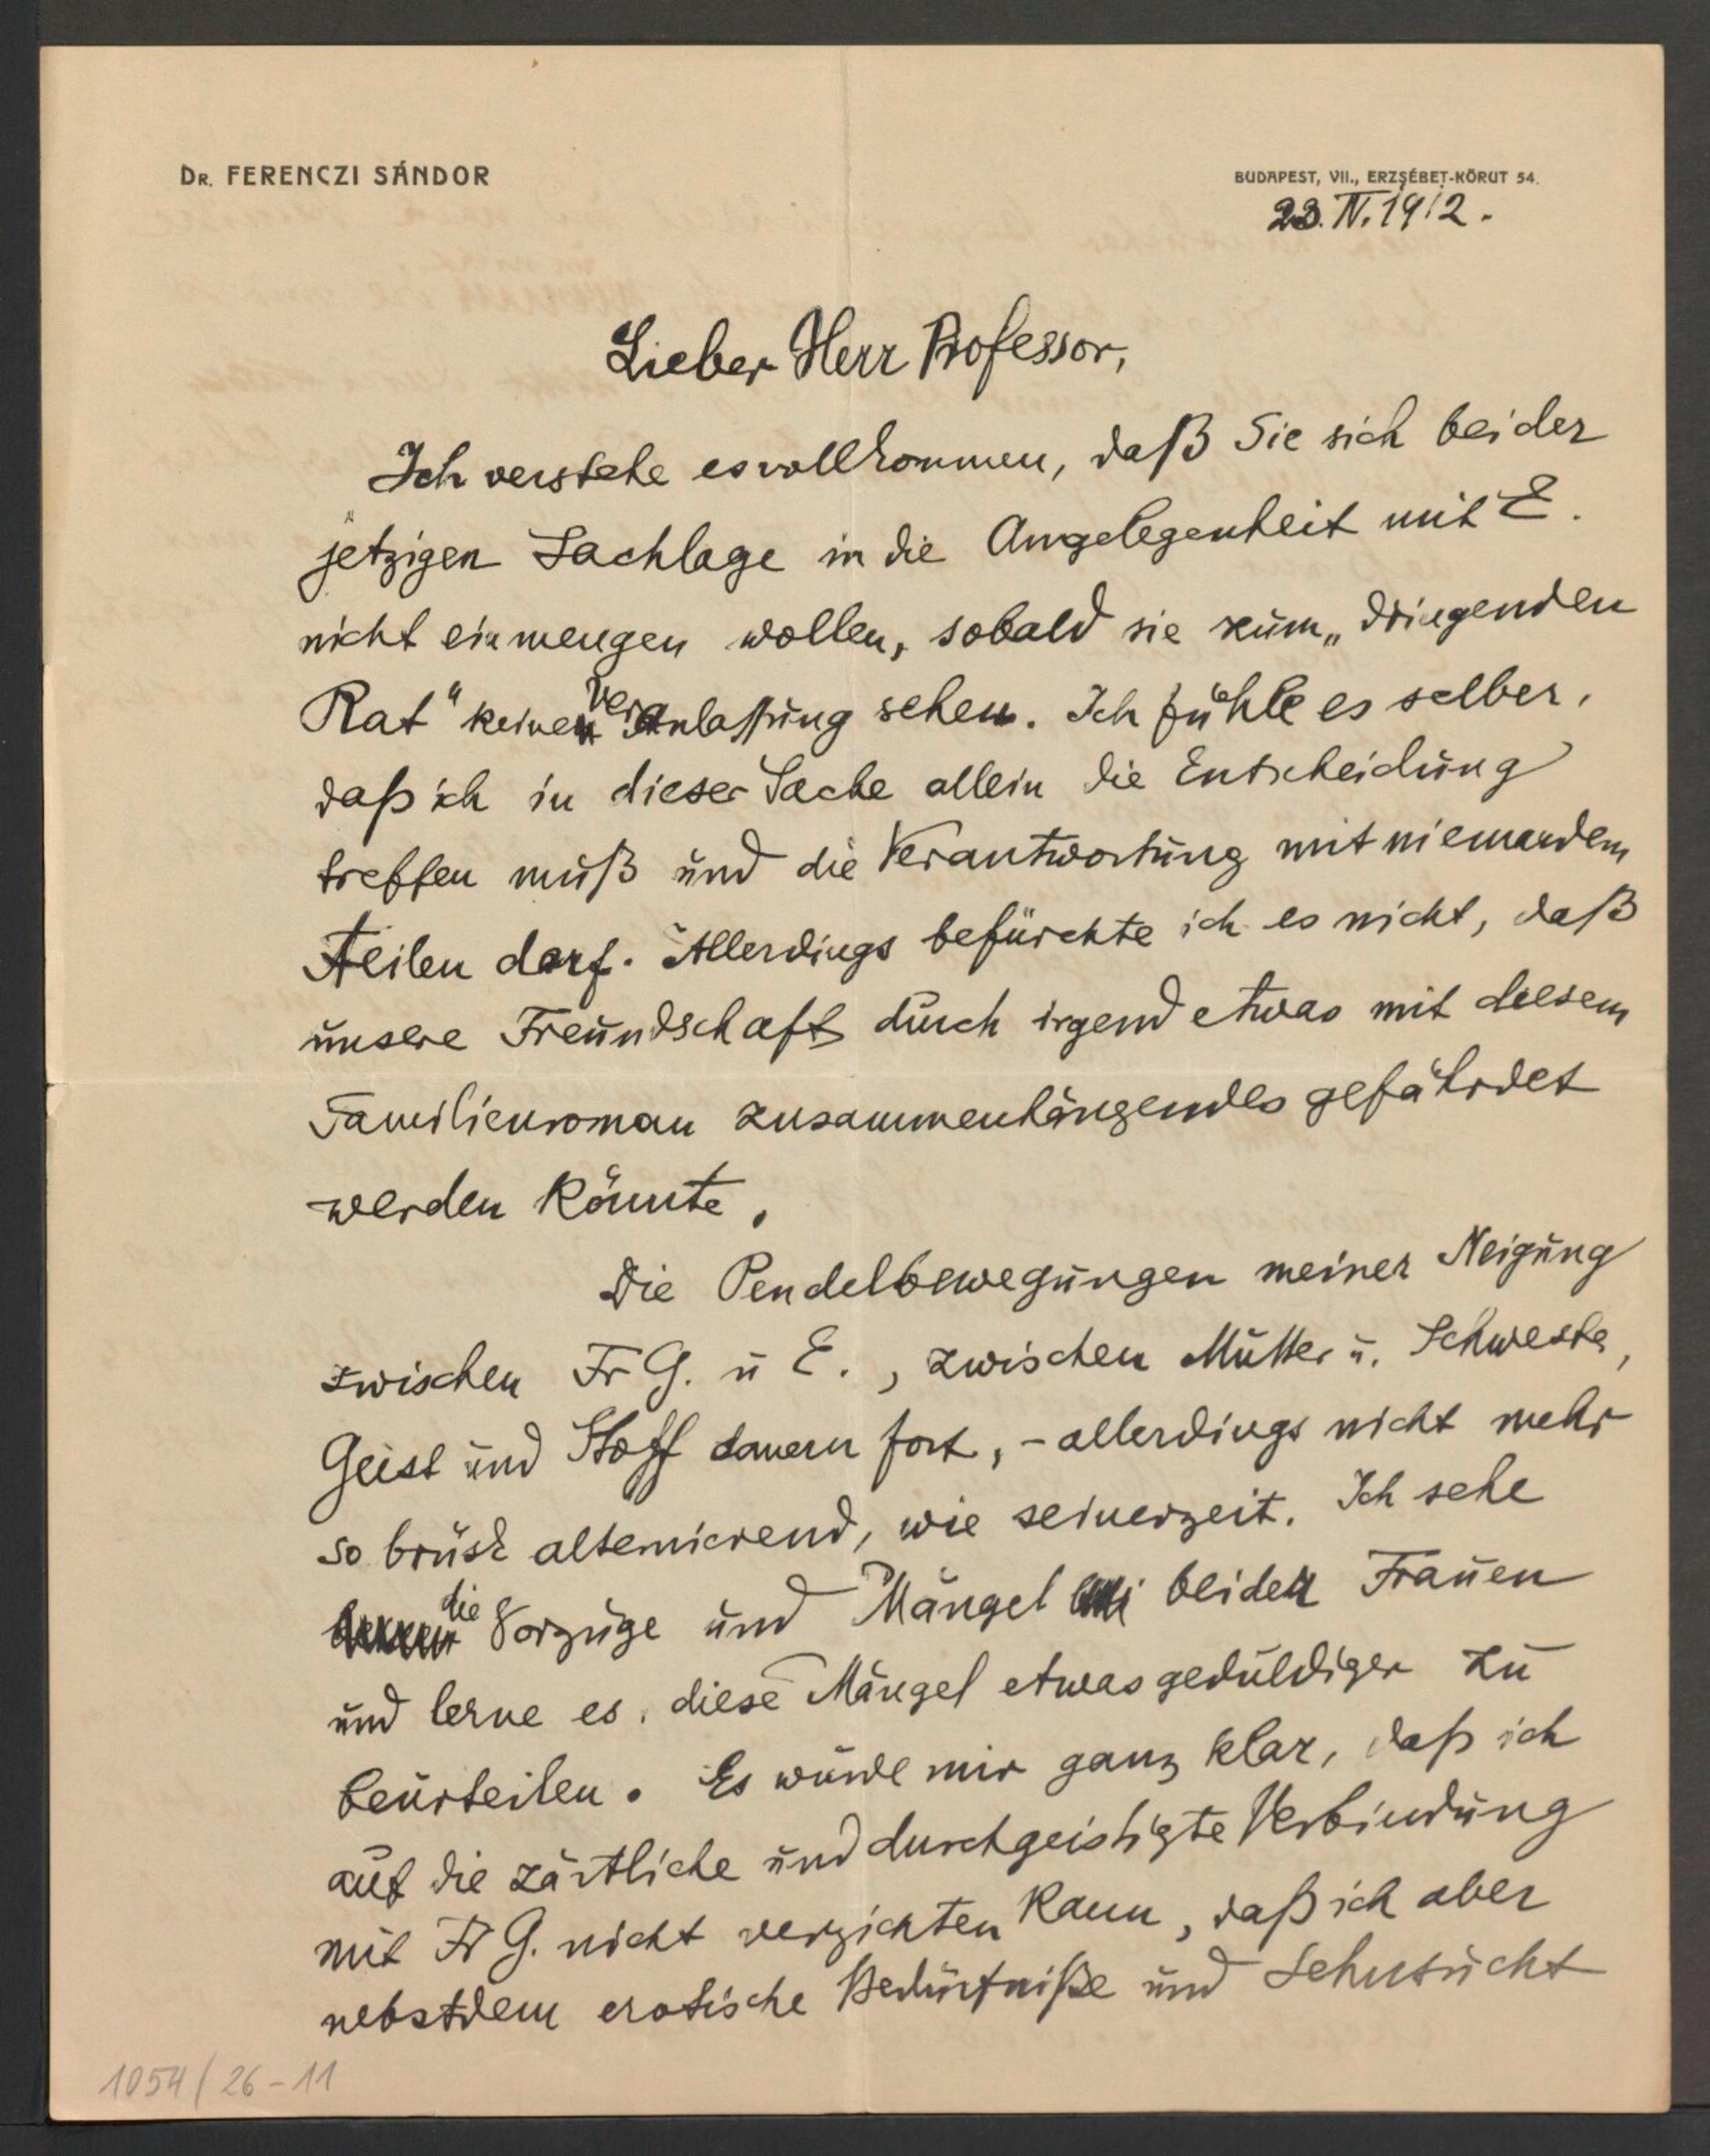 DR. FERENCZI SÁNDOR
BUDAPEST, VII., ERZSÉBET-KÖRUT 54.
23. IV. 1912.
Lieber Herr Professor,
Ich verstehe es vollkommen, daß Sie sich bei der
jetzigen Sachlage in die Angelegenheit mit E.
nicht einmengen wollen, sobald sie zum „dringenden
Rat“ keinen Veranlassung sehen. Ich fühle es selber,
daß ich in dieser Sache allein die Entscheidung
treffen muß und die Verantwortung mit niemandem
teilen darf. Allerdings befürchte ich es nicht, daß
unsere Freundschaft durch irgend etwas mit diesem
Familienroman zusammenhängendes gefährdet
werden könnte.
Die Pendelbewegungen meiner Neigung
zwischen Fr G. u E., zwischen Mutter u. Schwester,
Geist und Stoff dauern fort, - allerdings nicht mehr
so brüsk alternierend, wie seinerzeit. Ich sehe
die Vorzüge und Mängel beider Frauen
und lerne es, diese Mängel etwas geduldiger zu
beurteilen. Es wurde mir ganz klar, daß ich
auf die zärtliche und durchgeistigte Verbindung
mit Fr G. nicht verzichten kann, daß ich aber
nebstdem erotische Bedürfniße und Sehnsucht
1054/26-11